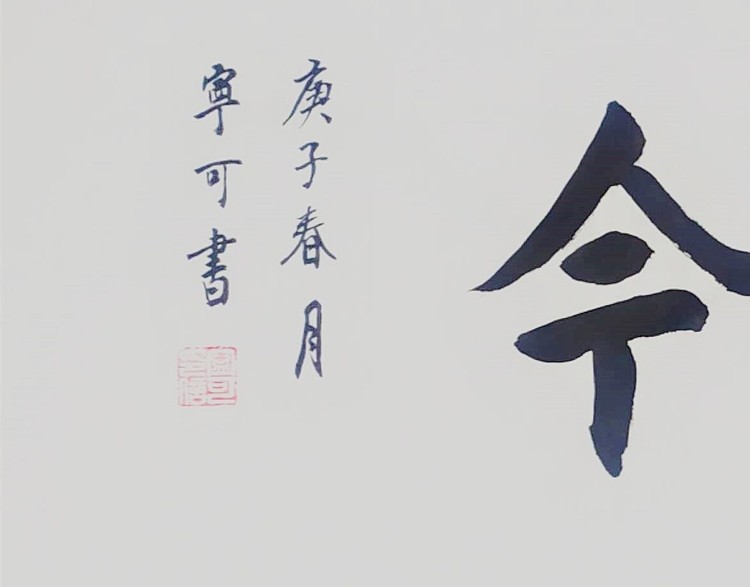 今
庚子春月
寧可書